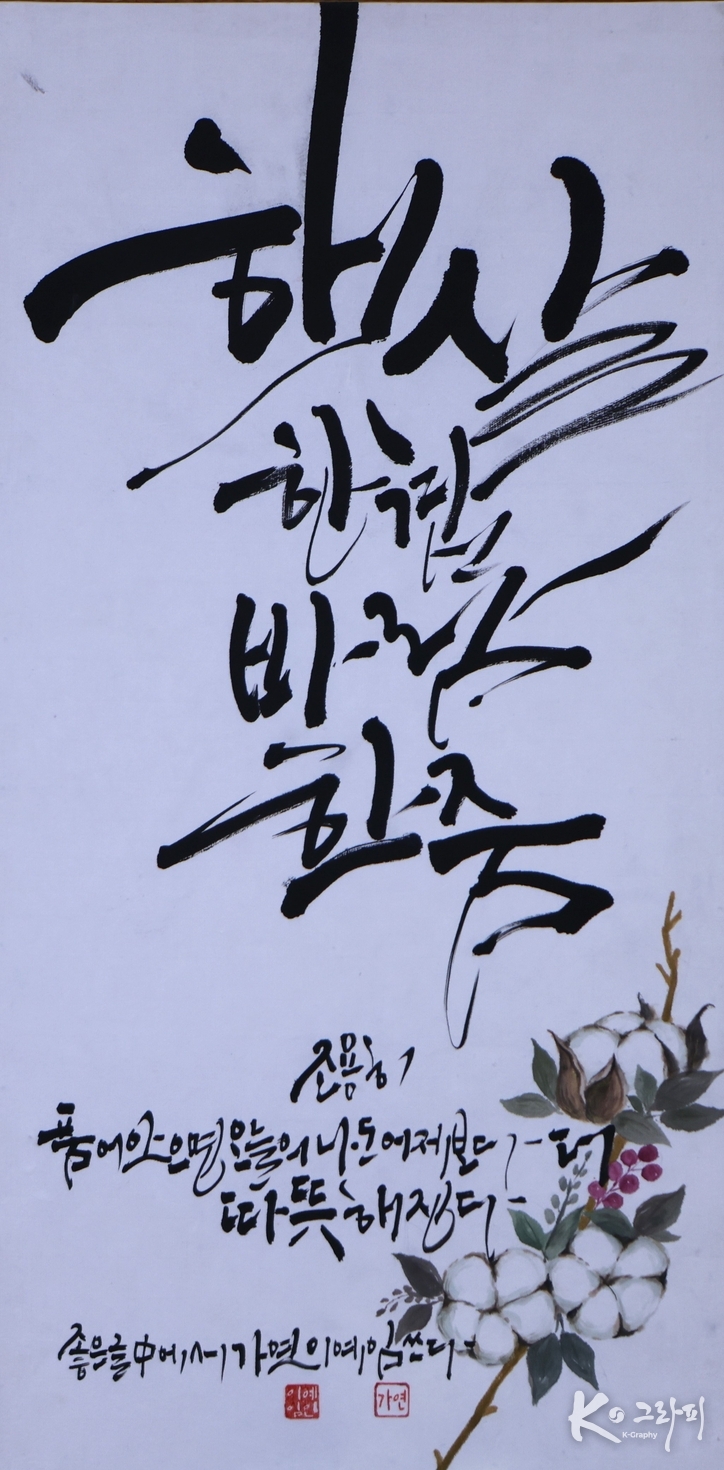 햇살
한 겹
바람
한 줌
조용히
품어 안으면 오늘의 나도 어제보다 더
따뜻해진다
좋은글 中에서 가연 이예임 쓰다
가연
K 그라피
K-Graphy